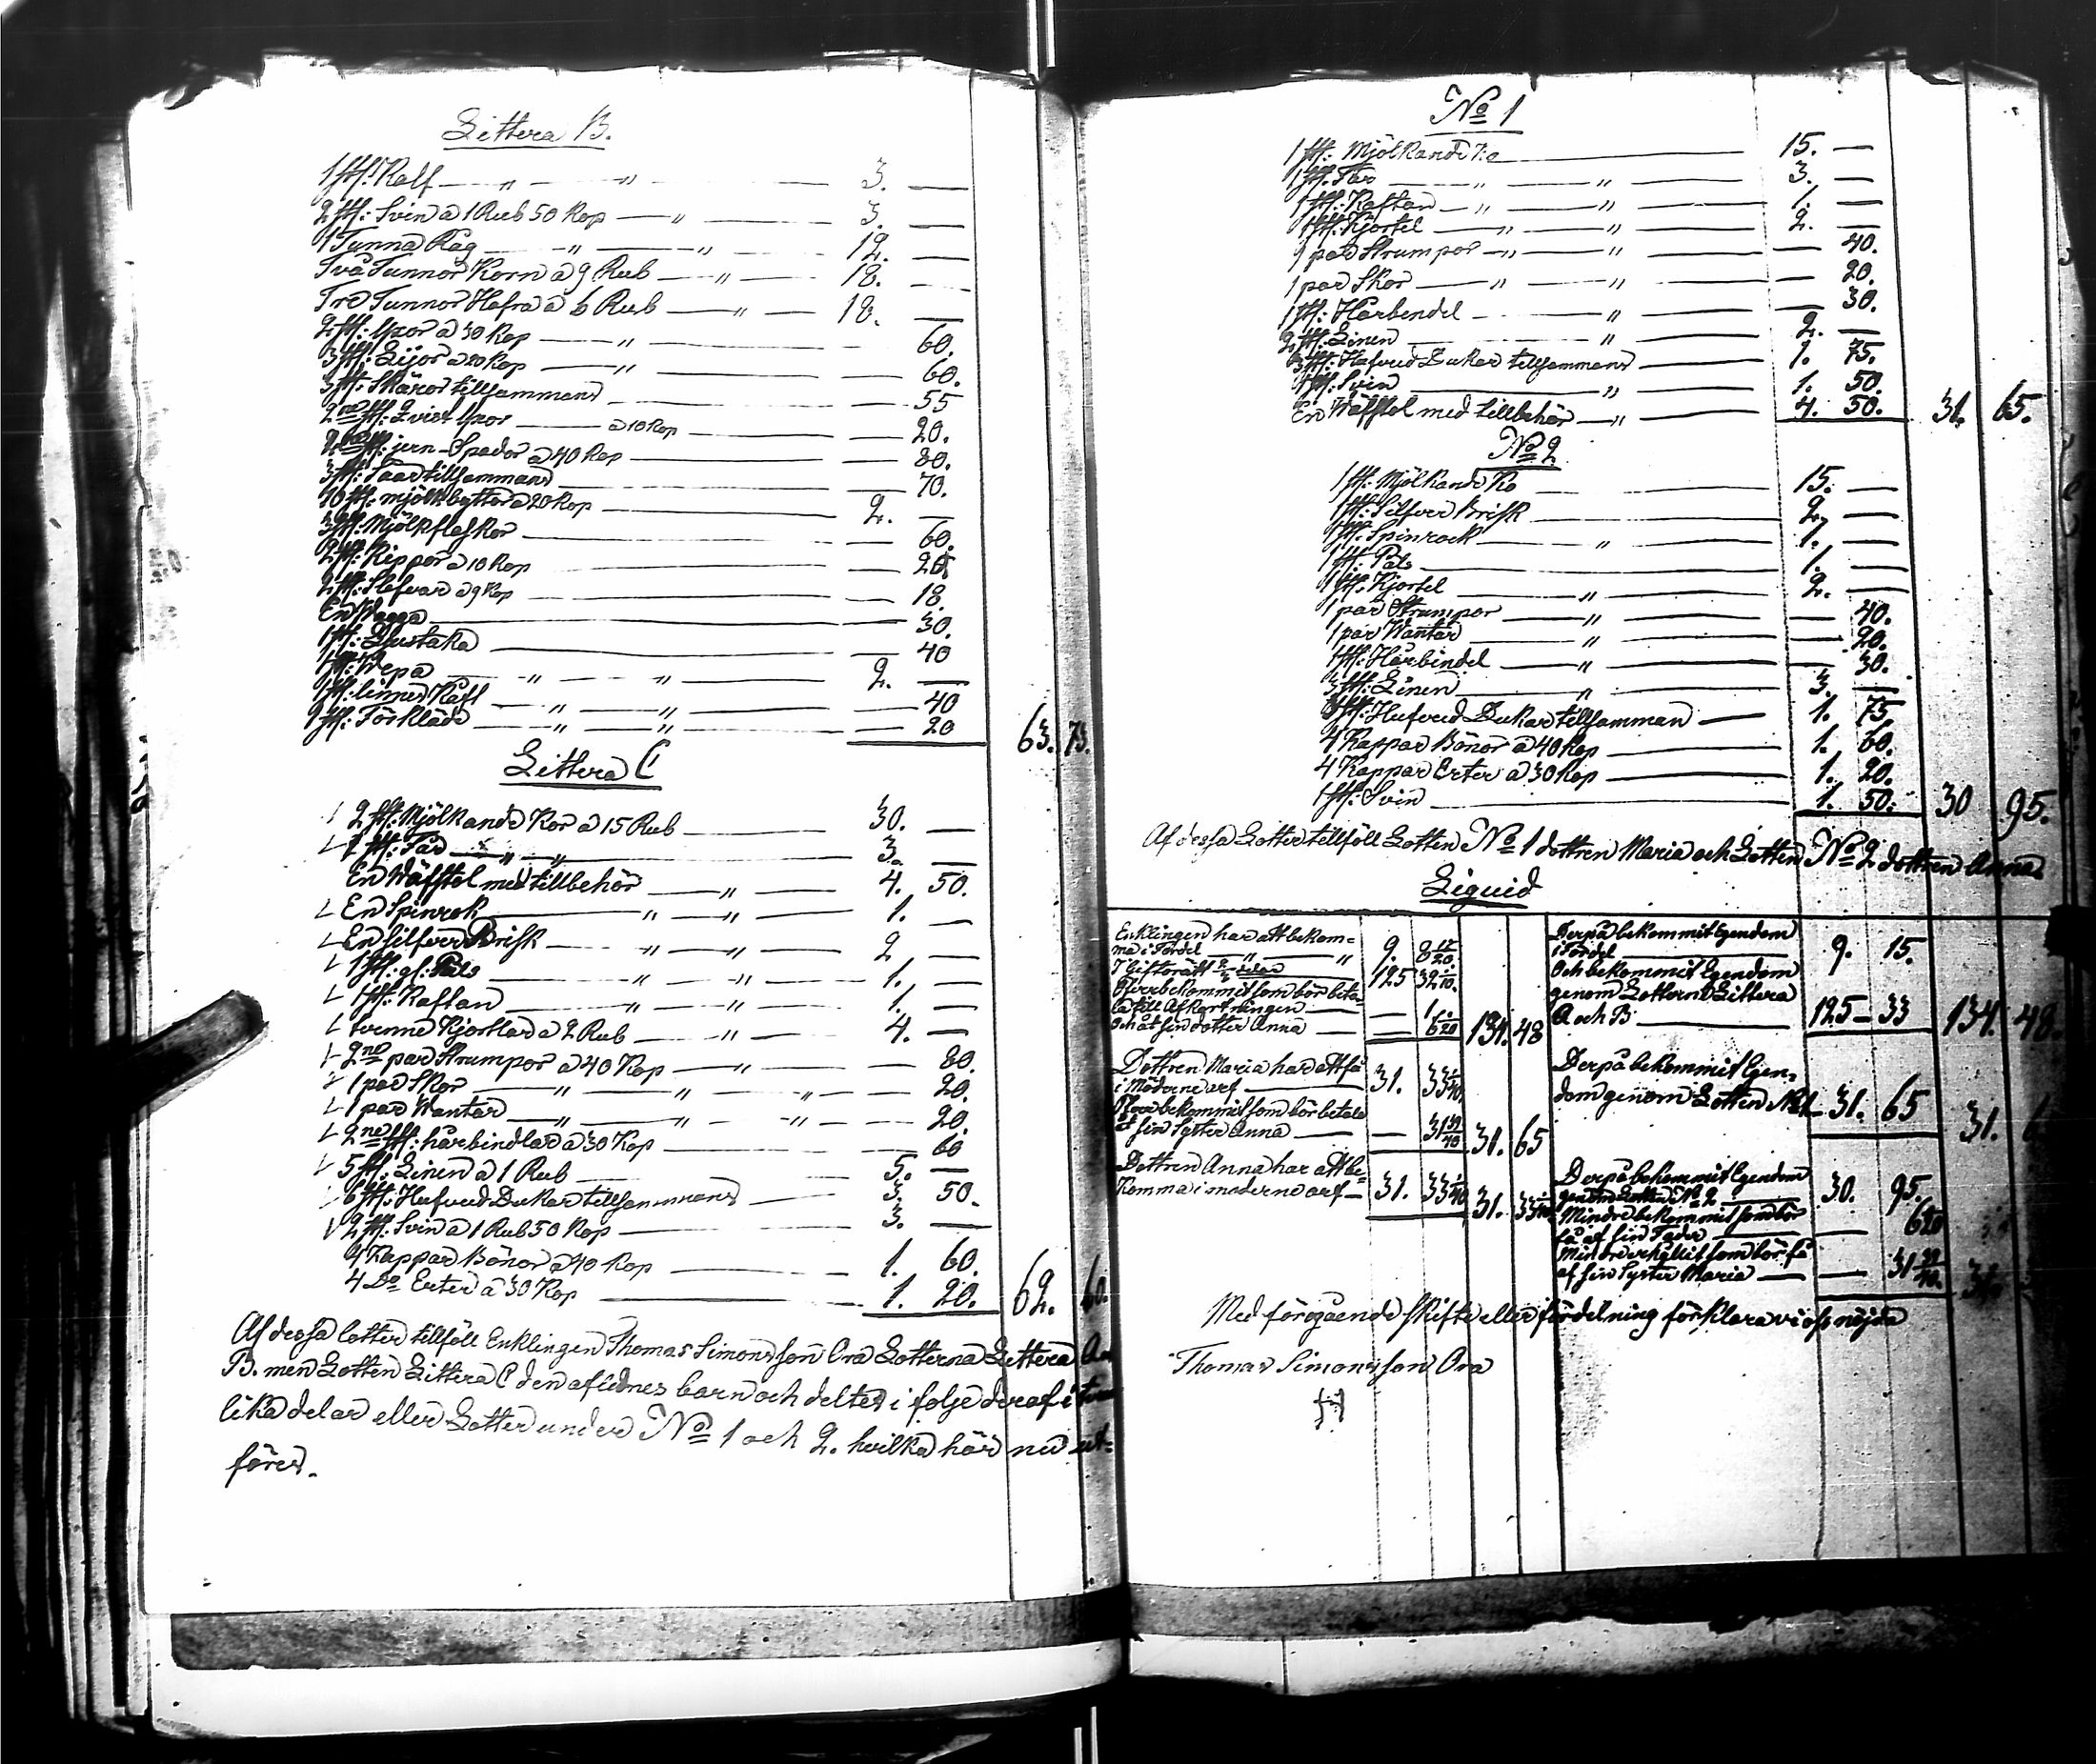 Littera B.
1 st: Kalf — „ — „ — 3. —
2 st: Svin a 1 Rub 50 Kop — „ — 3. —
1 Tunna Råg — „ — „ — 12. —
Två Tunnor Korn a 9 Rub — „ — 18. —
Tre Tunnor Hafra a 6 Rub — „ — 18. —
2 st: Yxor a 30 Kop — „ — 60.
3 st: Lijor a 20 Kop — „ — 60.
3 st: Skäror tillsammans — 55
2ne st: Qvist Yxor — a 10 Kop — 20.
2ne st: jern-Spador a 40 Kop — 80.
3 st: Saar tillsammans — 70.
10 st: mjölkbyttor a 20 Kop — 2. —
3 st: Mjölkfleskor — 60.
2 st: Kippor a 10 Kop — 20.
2 st: Slefvar a 9 Kop — 18.
En Wagga — 30.
1 st: Ljustaka — 40
1 st: Wepa — „ — „ — 2. —
1 st: linnes Kast — „ — „ — 40
1 st: Förkläde — „ — „ — 20 63. 73.
Littera C
2 st: Mjölkande Kor a 15 Rub — 30. —
1 st: Får — „ — „ — 3. —
En Wäfstol med tillbehör — „ — 4. 50.
En Spinrok — „ — „ — 1. —
En silfver Brisk — „ — „ — 2 —
1 st: gl: Päls — „ — „ — 1. —
1 st: Kaftan — „ — „ — 1. —
tvenne Kjortlar a 2 Rub — „ — 4. —
2ne par Strumpor a 40 Kop — „ — 80.
1 par Skor — „ — „ — „ — 20.
1 par Wantar — „ — „ — „ — 20.
2ne st: hårbindlar a 30 Kop — 60
5 st: Linen a 1 Rub — 5. —
6 st: Hufvud Dukar tillsammans — 3. 50.
2 st: Svin a 1 Rub 50 Kop — 3. —
4 Kappar Bönor a 40 Kop — 1. 60.
4 Do Erter a 30 Kop — 1. 20. 62. 60.
Af dessa lotter tillföll Enklingen Thomas Simonsson Ora Lotterna Littera A
B. men Lotten Littera C den aflidnes barn och deltes i följe deraf i
lika delar eller Lotter under No 1 och 2. hvilka här nu ut-
föres.
No 1
1 st: Mjölkande Ko — 15. —
1 st: Får — „ — „ — 3. —
1 st: Kaftan — „ — „ — 1. —
1 st: Kjortel — „ — „ — 2. —
1 par Strumpor — „ — „ — 40.
1 par Skor — „ — „ — 20.
1 st: Hårbendel — „ — 30.
2 st: Linen — „ — 2. —
3 st: Hufvud Dukar tillsammans — 1. 75.
1 st: Svin — „ — 1. 50.
En Wäfstol med tillbehör — „ — 4. 50. 31. 65.
No 2
1 st: Mjölkande Ko — 15. —
1 st: Silfver Brisk — 2. —
1 st: Spinrock — „ — 1. —
1 st: Päls — 1. —
1 st: Kjortel — „ — 2. —
1 par Strumpor — „ — 40.
1 par Wantar — „ — 20.
1 st: Hårbindel — „ — 30.
3 st: Linen — „ — 3. —
3 st: Hufvud Dukar tillsamman — 1. 75
4 Kappar Bönor a 40 Kop — 1. 60.
4 Kappar Erter a 30 Kop — 1. 20.
1 st: Svin — 1. 50. 30 95.
Af dessa Lotter tillföll Lotten No 1 dottren Maria och Lotten No 2 dottren Anna
Liquid
Enklingen har att bekom-
ma i Fördel „ „ 9. 8 17/20.
I Giftorätt 125 39
Öfverbekommit som bör beta-
la till Afkortningen — 1.
och åt sin dotter Anna — 6 134. 48
Dottren Maria har att få
i Möderne arf — 31. 33
Öfverbekommit som bör betala
åt sin Syster Anna — 31 39/40 31. 65
Dottren Anna har att be-
komma i moderne arf — 31. 33 31. 33
Derpå bekommit Egendom
i Fördel — 9. 15.
Och bekommit Egendom
genom Lotterne Littera
A och B — 125 — 33 134. 48.
Derpå bekommit Egen-
dom genom Lotten No 1 — 31. 65 31.
Derpå bekommit Egendom
genom Lotten No 2 — 30. 95.
Mindre bekommit som bör
få af sin Fader — 6
Mindre erhållit som bör få
af sin Syster Maria — 31 39/40.
Med föregående skifte eller fördelning förklara vi oss nöjda
Thomas Simonsson Ora